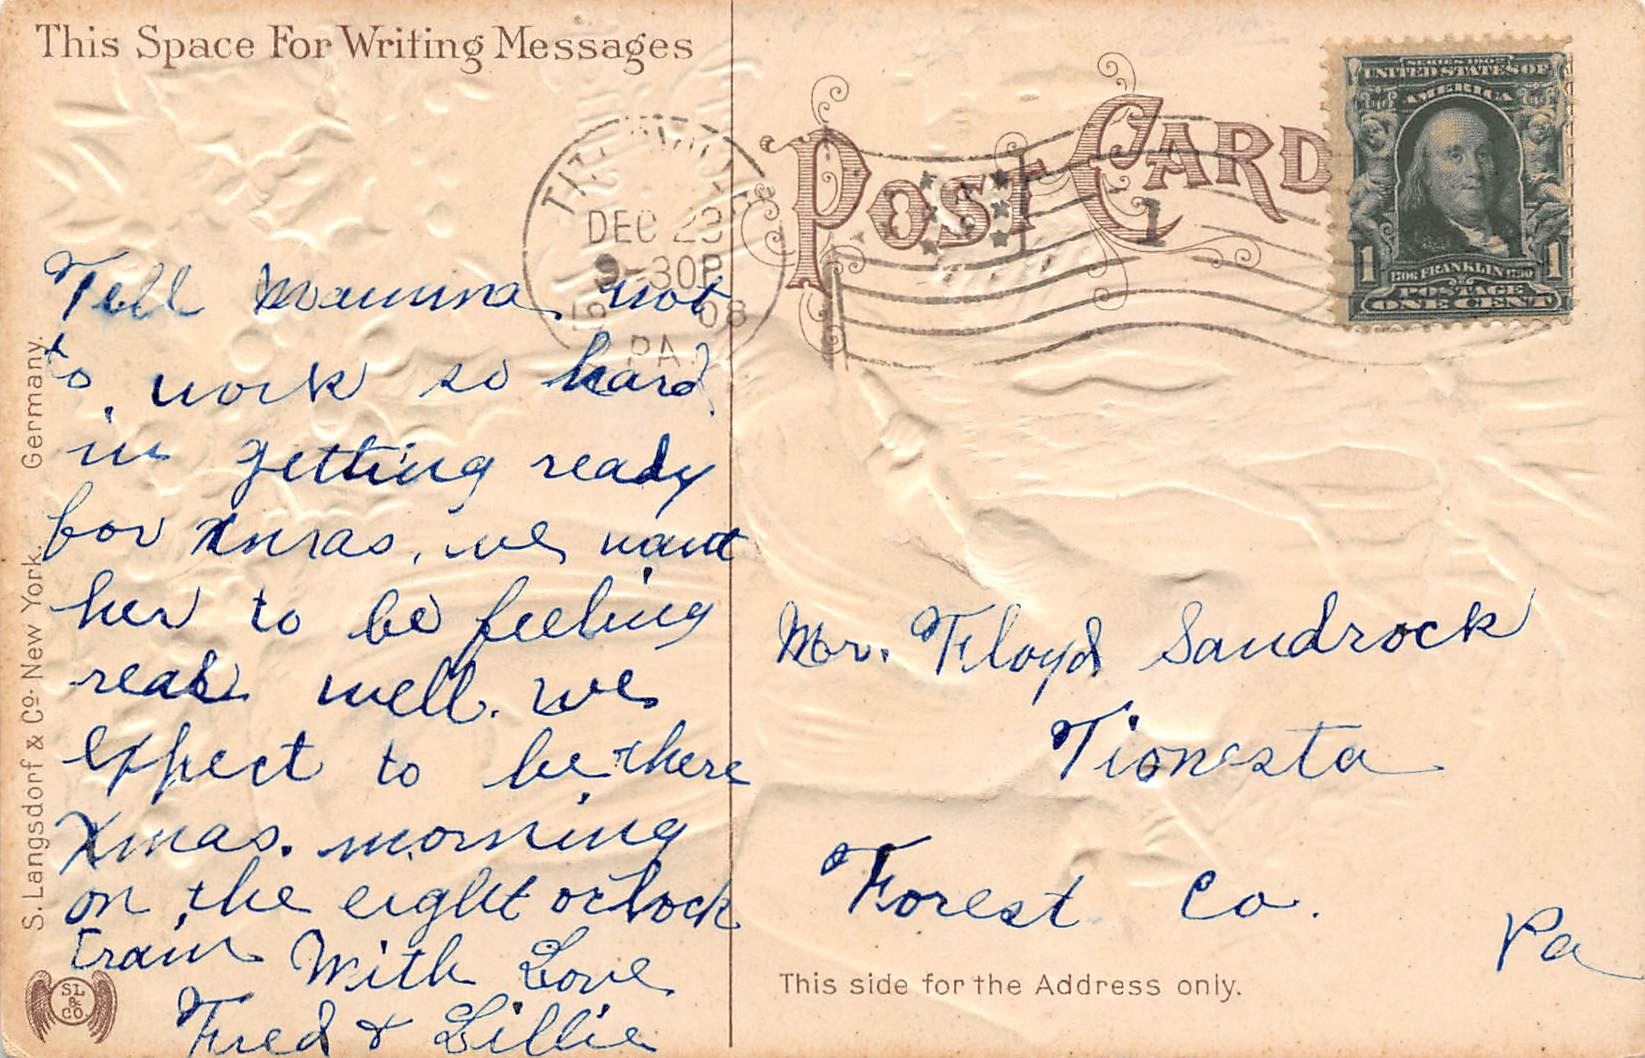 This Space For Writing Messages
Tell Mamma not
to work so hard
in getting ready
for Xmas, we want
her to be feeling
real well. we
expect to be there
Xmas. morning
on the eight oclock
train With Love
Fred & Lillie
S. Langsdorf & Co. New York. Germany.
SL
&
CO.
POST CARD
DEC 23
9-30P
08
PA.
1
SERIES 1902
UNITED STATES OF
AMERICA
1706 FRANKLIN 1790
1 1
POSTAGE
ONE CENT
Mr. Floyd Sandrock
Tionesta
Forest Co.
Pa
This side for the Address only.